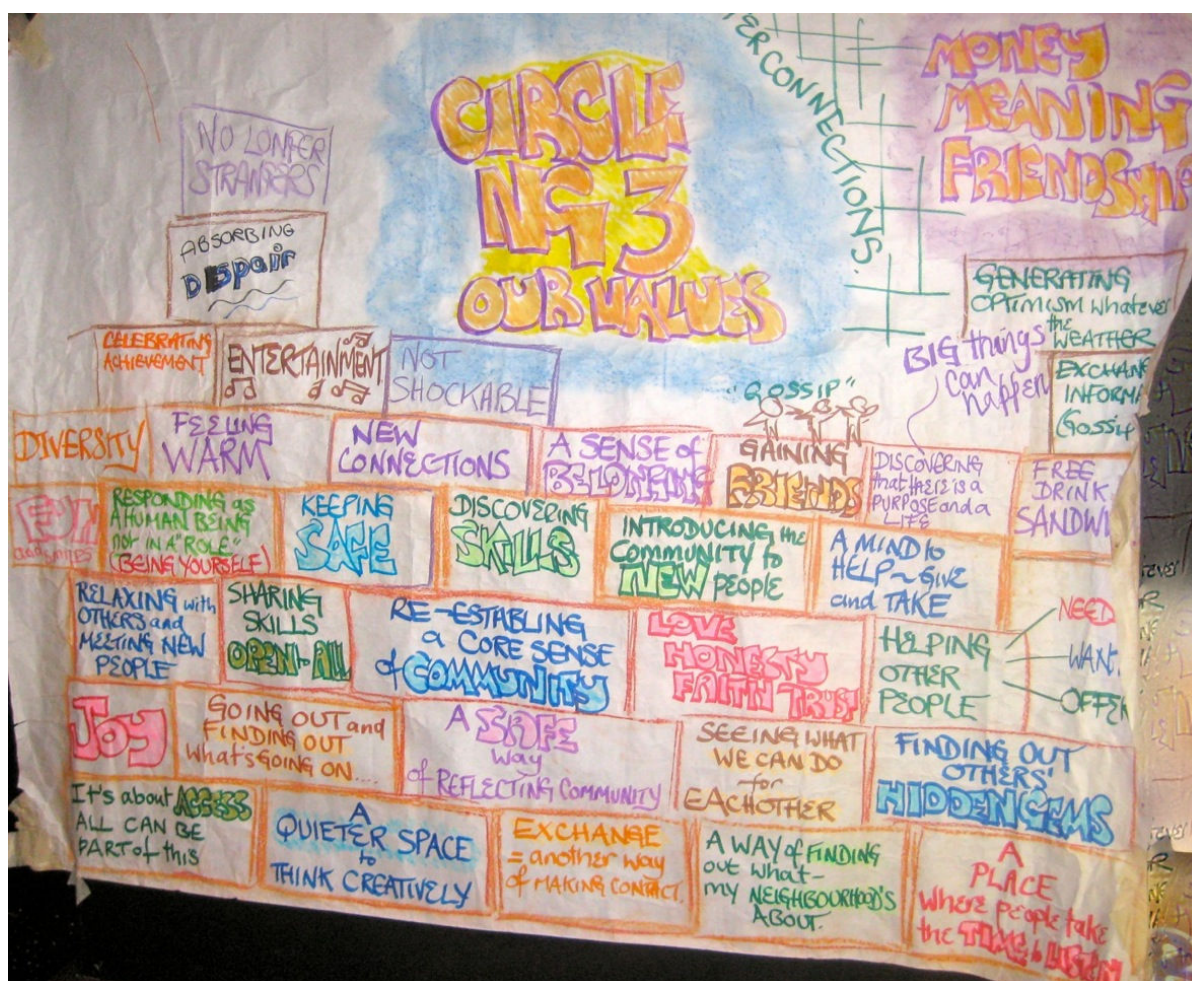 CIRCLE
NG3
OUR VALUES
INTERCONNECTIONS.
MONEY
MEANING
FRIENDSHIP
NO LONGER
STRANGERS
ABSORBING
DESpair
GENERATING
OPTIMISM whatever
the
WEATHER
BIG things
can
happen
CELEBRATING
ACHIEVEMENT
ENTERTAINMENT
NOT
SHOCKABLE
"GOSSIP"
EXCHAN
INFORMA
(GOSSIP
DIVERSITY
FEELING
WARM
NEW
CONNECTIONS
A SENSE of
BELONGING
GAINING
FRIENDS
DISCOVERING
that there is a
PURPOSE and a
LIFE
FREE
DRINK
SANDWI
FUN
RESPONDING as
A HUMAN BEING
not in a "ROLE"
(BEING YOURSELF)
KEEPING
SAFE
DISCOVERING
SKILLS
INTRODUCING the
COMMUNITY to
NEW PEOPLE
A MIND to
HELP ~ GIVE
and TAKE
RELAXING with
OTHERS and
MEETING NEW
PEOPLE
SHARING
SKILLS
OPEN to ALL
RE-ESTABLING
a CORE SENSE
of COMMUNITY
LOVE
HONESTY
FAITH TRUST
HELPING
OTHER
PEOPLE
NEED
WANT.
OFFER
JOY
GOING OUT and
FINDING OUT
what's GOING ON....
A SAFE
way
of REFLECTING COMMUNITY
SEEING WHAT
WE CAN DO
for
EACHOTHER
FINDING OUT
OTHERS'
HIDDEN GEMS
It's about ACCESS
ALL CAN BE
PART of this
A
QUIETER SPACE
to
THINK CREATIVELY
EXCHANGE
= another way
of MAKING CONTACT.
A WAY of FINDING
out what-
my NEIGHBOURHOOD'S
ABOUT.
A
PLACE
where people take
the TIME to LISTEN